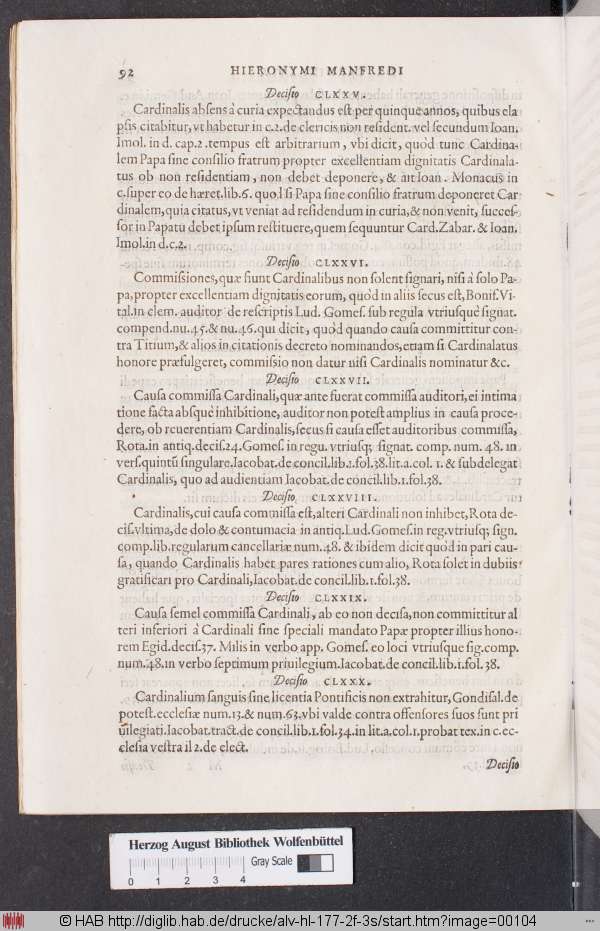 92 HIERONYMI MANFREDI
Decisio CLXXV.
Cardinalis absens à curia expectandus est per quinque annos, quibus ela
psis citabitur, vt habetur in c.2.de clericis non resident. vel secundum Ioan.
Imol. in d. cap.2. tempus est arbitrarium, vbi dicit, quòd tunc Cardina-
lem Papa sine consilio fratrum propter excellentiam dignitatis Cardinala-
tus ob non residentiam, non debet deponere, & ait Ioan. Monacus in
c.super eo de hæret.lib.6. quod si Papa sine consilio fratrum deponeret Car
dinalem, quia citatus, vt veniat ad residendum in curia, & non venit, succes-
sor in Papatu debet ipsum restituere, quem sequuntur Card.Zabar. & Ioan.
Imol.in d.c.2.
Decisio CLXXVI.
Commissiones, quæ fiunt Cardinalibus non solent signari, nisi à solo Pa-
pa, propter excellentiam dignitatis eorum, quòd in aliis secus est, Bonif. Vi-
tal.in clem. auditor de rescriptis Lud. Gomes. sub regula vtriusquè signat.
compend.nu.45.& nu.46.qui dicit, quòd quando causa committitur con-
tra Titium, & alios in citationis decreto nominandos, etiam si Cardinalatus
honore præfulgeret, commissio non datur nisi Cardinalis nominatur &c.
Decisio CLXXVII.
Causa commissa Cardinali, quæ ante fuerat commissa auditori, ei intima
tione facta absquè inhibitione, auditor non potest amplius in causa proce-
dere, ob reuerentiam Cardinalis, secus si causa esset auditoribus commissa,
Rota.in antiq.decis.24.Gomes. in regu. vtriusq; signat. comp. num. 48. in
vers.quintũ singulare.Iacobat.de concil.lib.1.fol.38.lit.a.col. 1. & subdelegat
Cardinalis, quo ad audientiam Iacobat.de concil.lib.1.fol.38.
Decisio CLXXVIII.
Cardinalis, cui causa commissa est, alteri Cardinali non inhibet, Rota de-
cis.vltima, de dolo & contumacia in antiq.Lud.Gomes.in reg.vtriusq; sign.
comp.lib.regularum cancellariæ num.48. & ibidem dicit quòd in pari cau-
sa, quando Cardinalis habet pares rationes cum alio, Rota solet in dubiis
gratificari pro Cardinali, Iacobat.de concil.lib.1.fol.38.
Decisio CLXXIX.
Causa semel commissa Cardinali, ab eo non decisa, non committitur al
teri inferiori à Cardinali sine speciali mandato Papæ propter illius hono-
rem Egid.decis.37. Milis in verbo app. Gomes. eo loci vtriusque sig.comp.
num.48.in verbo septimum priuilegium.Iacobat.de concil.lib.1.fol. 38.
Decisio CLXXX.
Cardinalium sanguis sine licentia Pontificis non extrahitur, Gondisal.de
potest.ecclesiæ num.13.& num.63.vbi valde contra offensores suos sunt pri
uilegiati.Iacobat.tract.de concil.lib.1.fol.34.in lit.a.col.1.probat tex.in c.ec-
clesia vestra il 2.de elect.
Decisio
Herzog August Bibliothek Wolfenbüttel
Gray Scale
0 1 2 3 4
© HAB http://diglib.hab.de/drucke/alv-hl-177-2f-3s/start.htm?image=00104